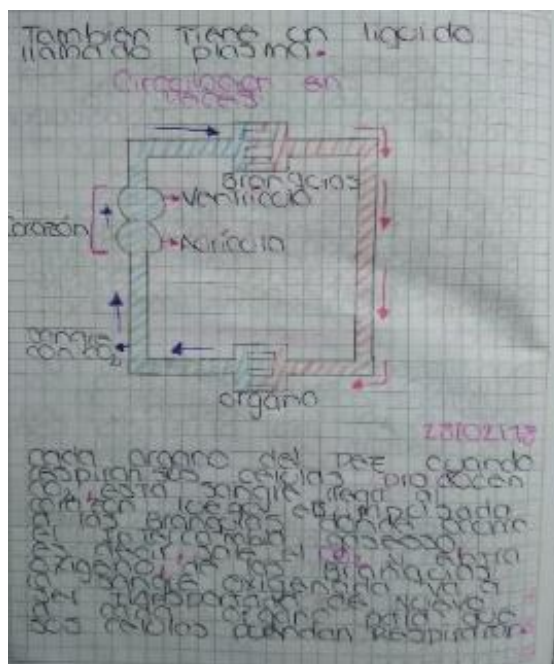 También Tiene un liquido
llamado plasma.
Circulacion en
Peces
Branqcias
Ventriccio
Corazón
Auricola
Sangre
con CO₂
organo
23/02/18
cada organo del PEZ cuando
respiran sus células producen
CO₂, esta sangre llega al
corazón luego es impulsada
a las branqcias donde ocurre
el intercambio gaseoso
es decir sale el CO₂ y entra
oxigeno a las branqcias
la sangre oxigenada va a
ser transportada de nuevo
a cada organo para que
sus células puedan Respirar.